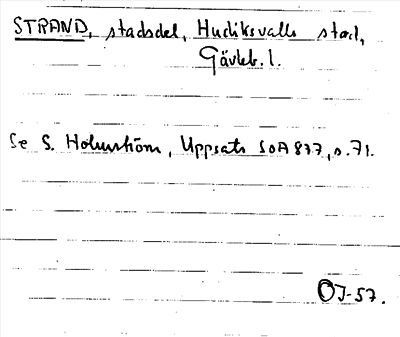 STRAND, stadsdel, Hudiksvalls stad,
Gävleb. l.
Se S. Holmström, Uppsats SOA 877, s. 71.
OJ-57.